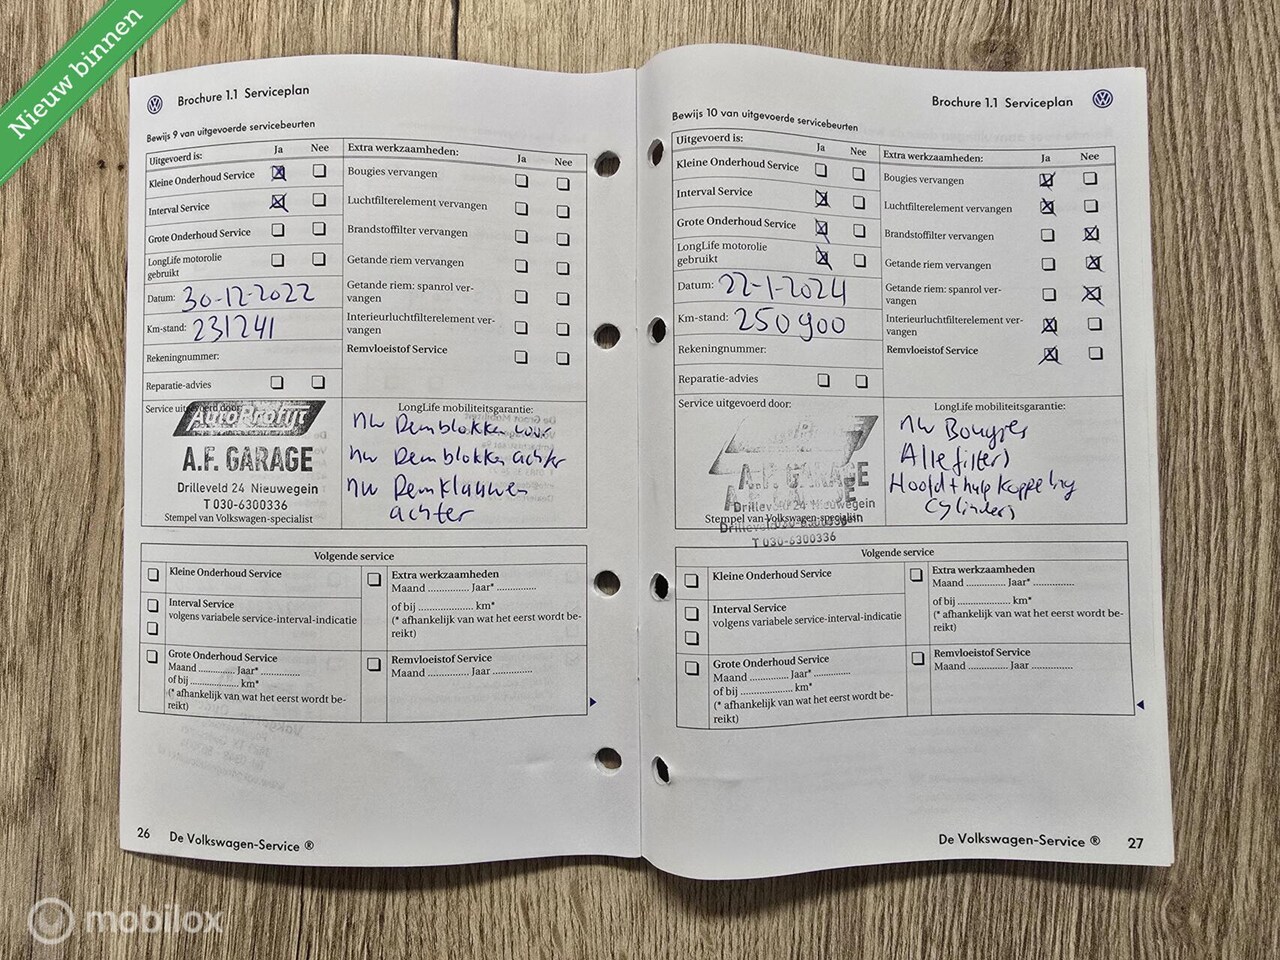 Nieuw binnen
Brochure 1.1 Serviceplan
Bewijs 9 van uitgevoerde servicebeurten
Uitgevoerd is: Ja Nee
Kleine Onderhoud Service
Interval Service
Grote Onderhoud Service
LongLife motorolie
gebruikt
Datum: 30-12-2022
Km-stand: 231241
Rekeningnummer:
Reparatie-advies
Service uitgevoerd door:
AutoProfijt
A.F. GARAGE
Drilleveld 24 Nieuwegein
T 030-6300336
Stempel van Volkswagen-specialist
Extra werkzaamheden: Ja Nee
Bougies vervangen
Luchtfilterelement vervangen
Brandstoffilter vervangen
Getande riem vervangen
Getande riem: spanrol ver-
vangen
Interieurluchtfilterelement ver-
vangen
Remvloeistof Service
LongLife mobiliteitsgarantie:
nw Remblokken voor
nw Remblokken achter
nw Remklauwen
achter
Volgende service
Kleine Onderhoud Service
Interval Service
volgens variabele service-interval-indicatie
Grote Onderhoud Service
Maand .............. Jaar* ...............
of bij .................. km*
(* afhankelijk van wat het eerst wordt be-
reikt)
Extra werkzaamheden
Maand ............... Jaar* ...............
of bij ..................... km*
(* afhankelijk van wat het eerst wordt be-
reikt)
Remvloeistof Service
Maand ............... Jaar ...............
26 De Volkswagen-Service ®
Brochure 1.1 Serviceplan
Bewijs 10 van uitgevoerde servicebeurten
Uitgevoerd is: Ja Nee
Kleine Onderhoud Service
Interval Service
Grote Onderhoud Service
LongLife motorolie
gebruikt
Datum: 22-1-2024
Km-stand: 250900
Rekeningnummer:
Reparatie-advies
Service uitgevoerd door:
A.F. GARAGE
Drilleveld 24 Nieuwegein
Stempel van Volkswagen-specialist
T 030-6300336
Extra werkzaamheden: Ja Nee
Bougies vervangen
Luchtfilterelement vervangen
Brandstoffilter vervangen
Getande riem vervangen
Getande riem: spanrol ver-
vangen
Interieurluchtfilterelement ver-
vangen
Remvloeistof Service
LongLife mobiliteitsgarantie:
nw Bougies
Alle filters
Hoofd + hulp Koppeling
Cylinders
Volgende service
Kleine Onderhoud Service
Interval Service
volgens variabele service-interval-indicatie
Grote Onderhoud Service
Maand .............. Jaar* ...............
of bij .................. km*
(* afhankelijk van wat het eerst wordt be-
reikt)
Extra werkzaamheden
Maand ............... Jaar* ...............
of bij ..................... km*
(* afhankelijk van wat het eerst wordt be-
reikt)
Remvloeistof Service
Maand ............... Jaar ...............
De Volkswagen-Service ® 27
mobilox